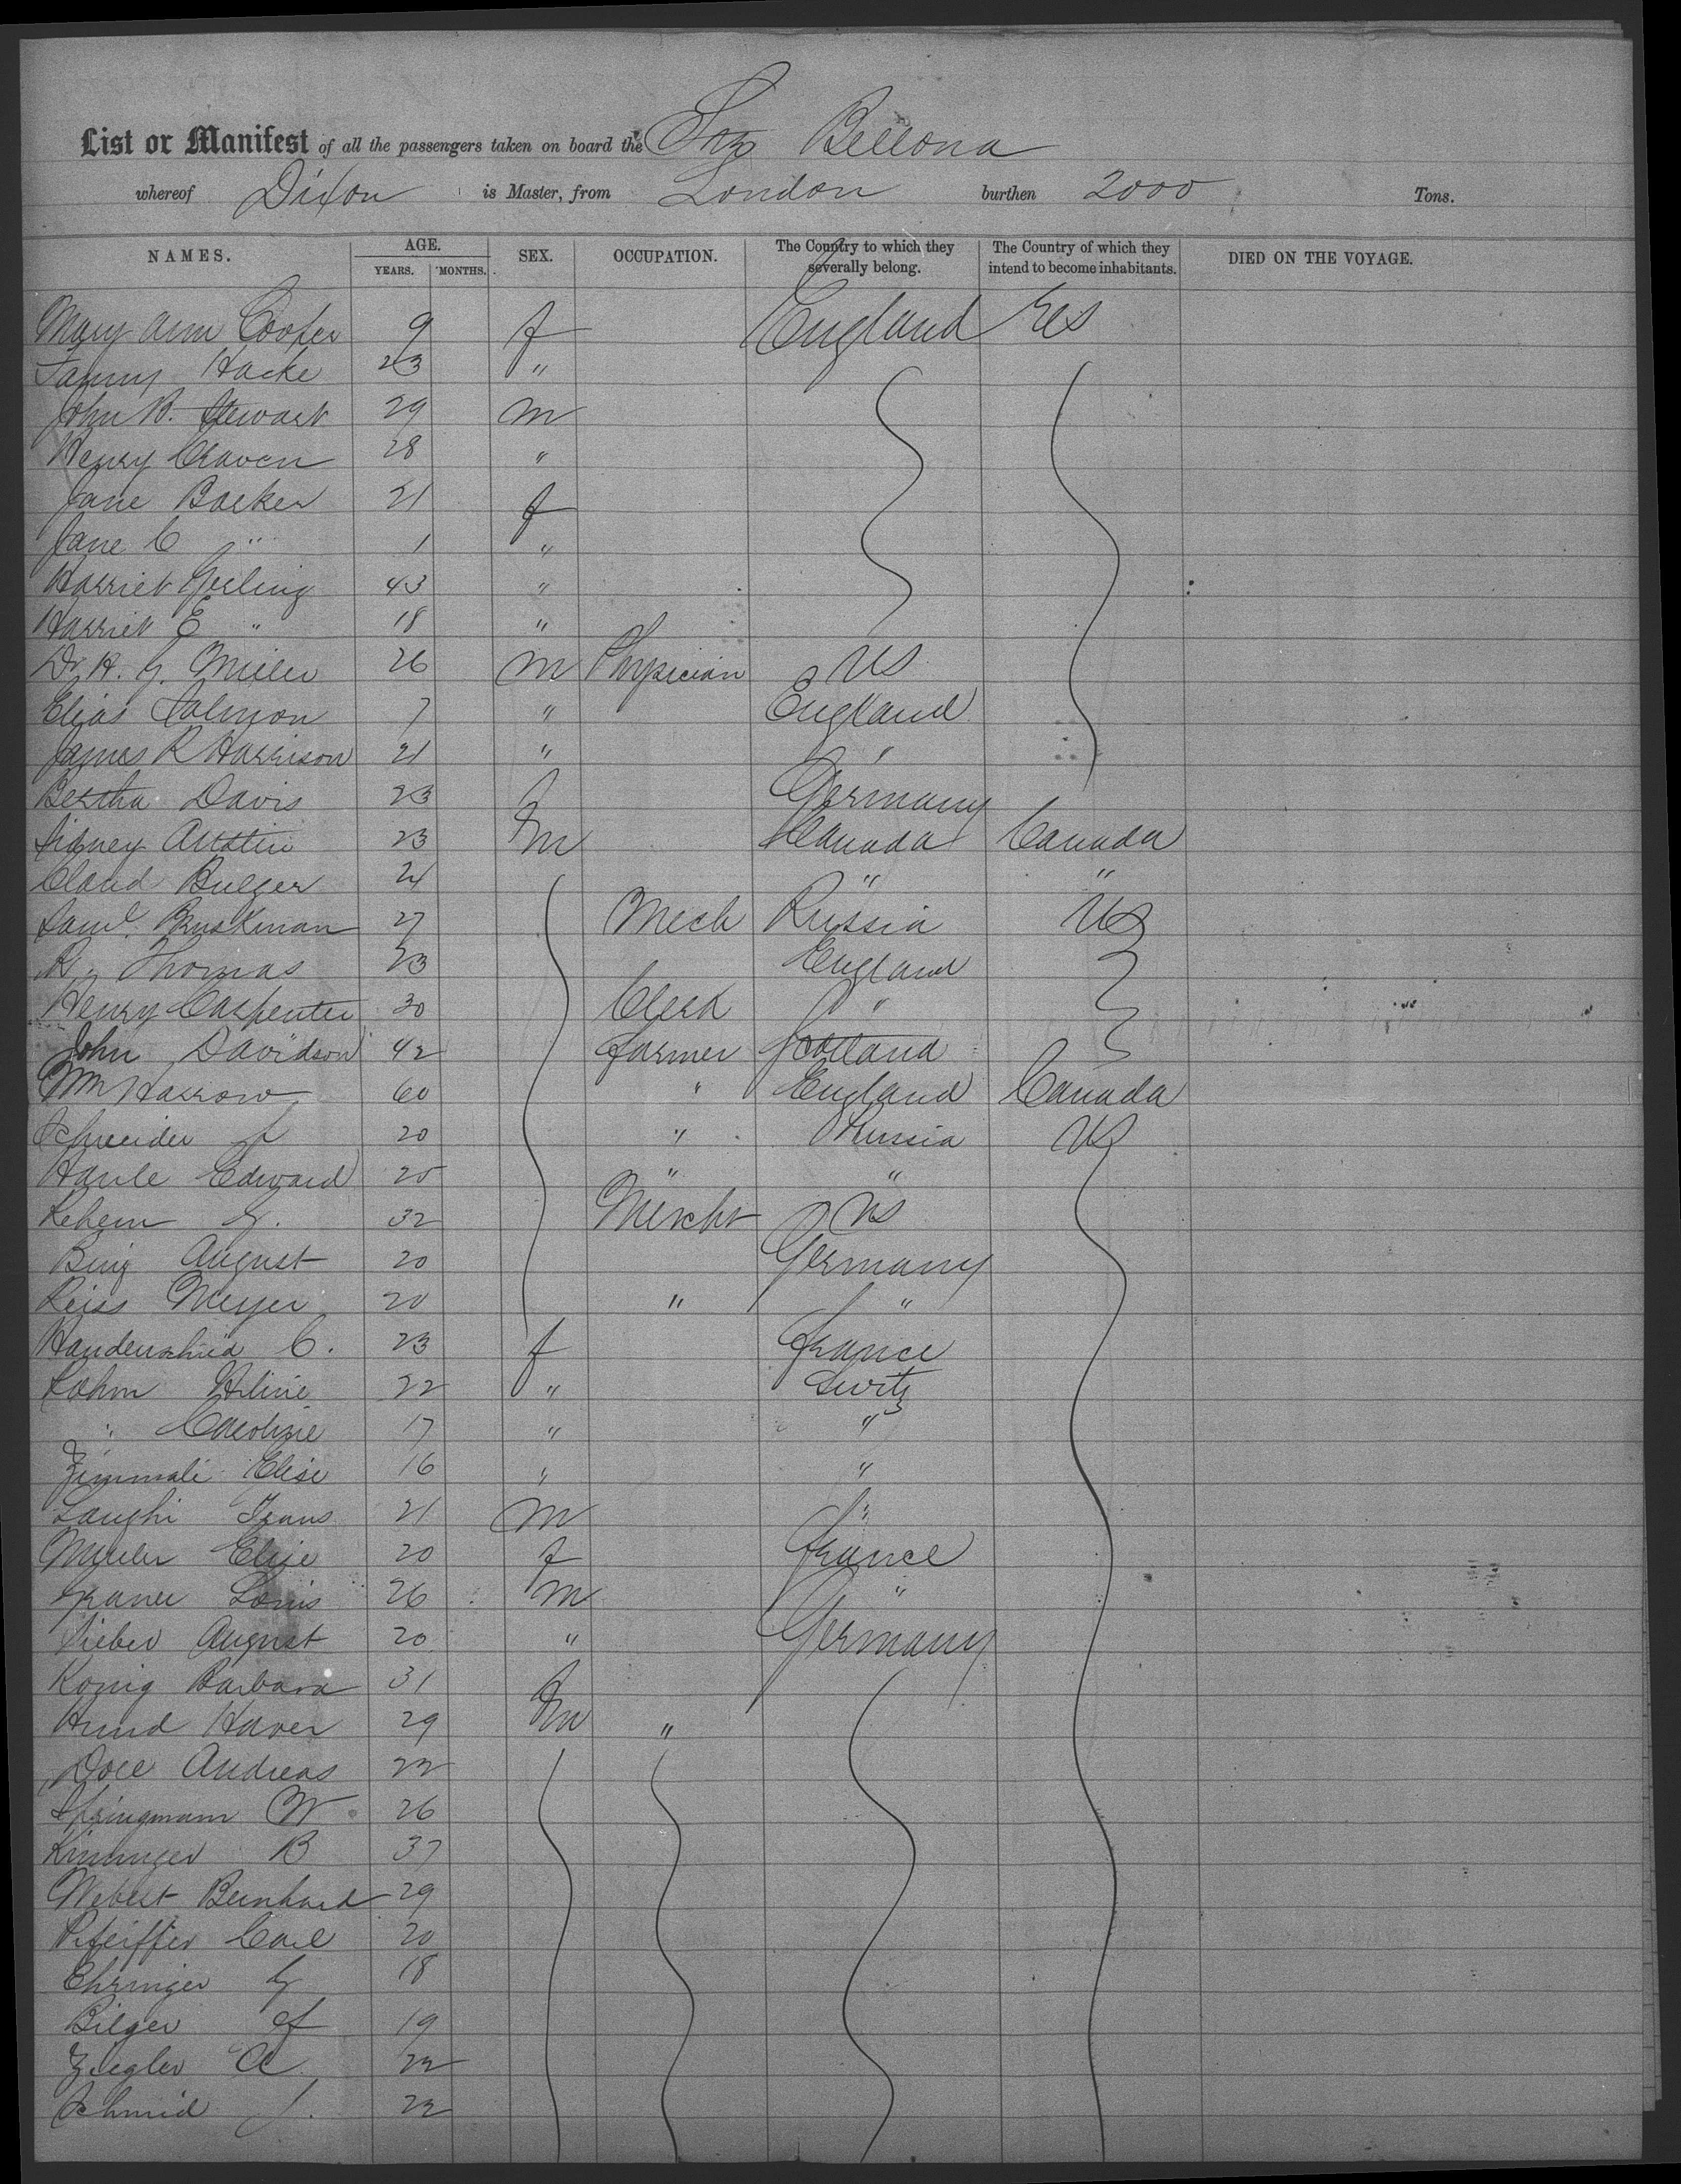 List or Manifest of all the passengers taken on board the Bellona
whereof Dixon is Master, from London burthen 2000 Tons.
NAMES. AGE. YEARS. MONTHS. SEX. OCCUPATION. The Country to which they severally belong. The Country of which they intend to become inhabitants. DIED ON THE VOYAGE.
Mary Ann Cooper 9 f England
Fanny Hacke 23 "
John B. Stewart 29 m
Henry Craven 28 "
Jane Barker 21 f
Jane C " 1 "
Harriet 43 "
Harriet E " 18 "
Dr. H. G. Miller 26 m Physician US
Elias Salmon 7 " England
James R Harrison 21 " "
Bertha Davis 23 f Germany
Sidney Austin 23 m Canada Canada
Claud Bulger 21 " "
Saml. Bruskman 27 Mech Russia US
H. Thomas 23 England
Henry Carpenter 30 Clerk "
John Davidson 42 farmer Scotland
Wm Harrow 60 " England Canada
Schreider J 20 " Russia US
Edward 25 " "
G. 32 Mercht US
Bing August 20 Germany
Reiss Meyer 20 " "
C. 23 f France
22 " Switz
" Caroline 17 " "
Zimmali Elise 16 " "
21 m "
Muller Elise 20 f France
Louis 26 m "
Sieber August 20 " Germany
Konig Barbara 31 f
29 m "
Doll Andreas 22
Springmann W 26
B 37
Bernhard 29
Pfeiffer Carl 20
Ehringer G 18
Bilger 19
Ziegler A. 22
Schmid J. 22